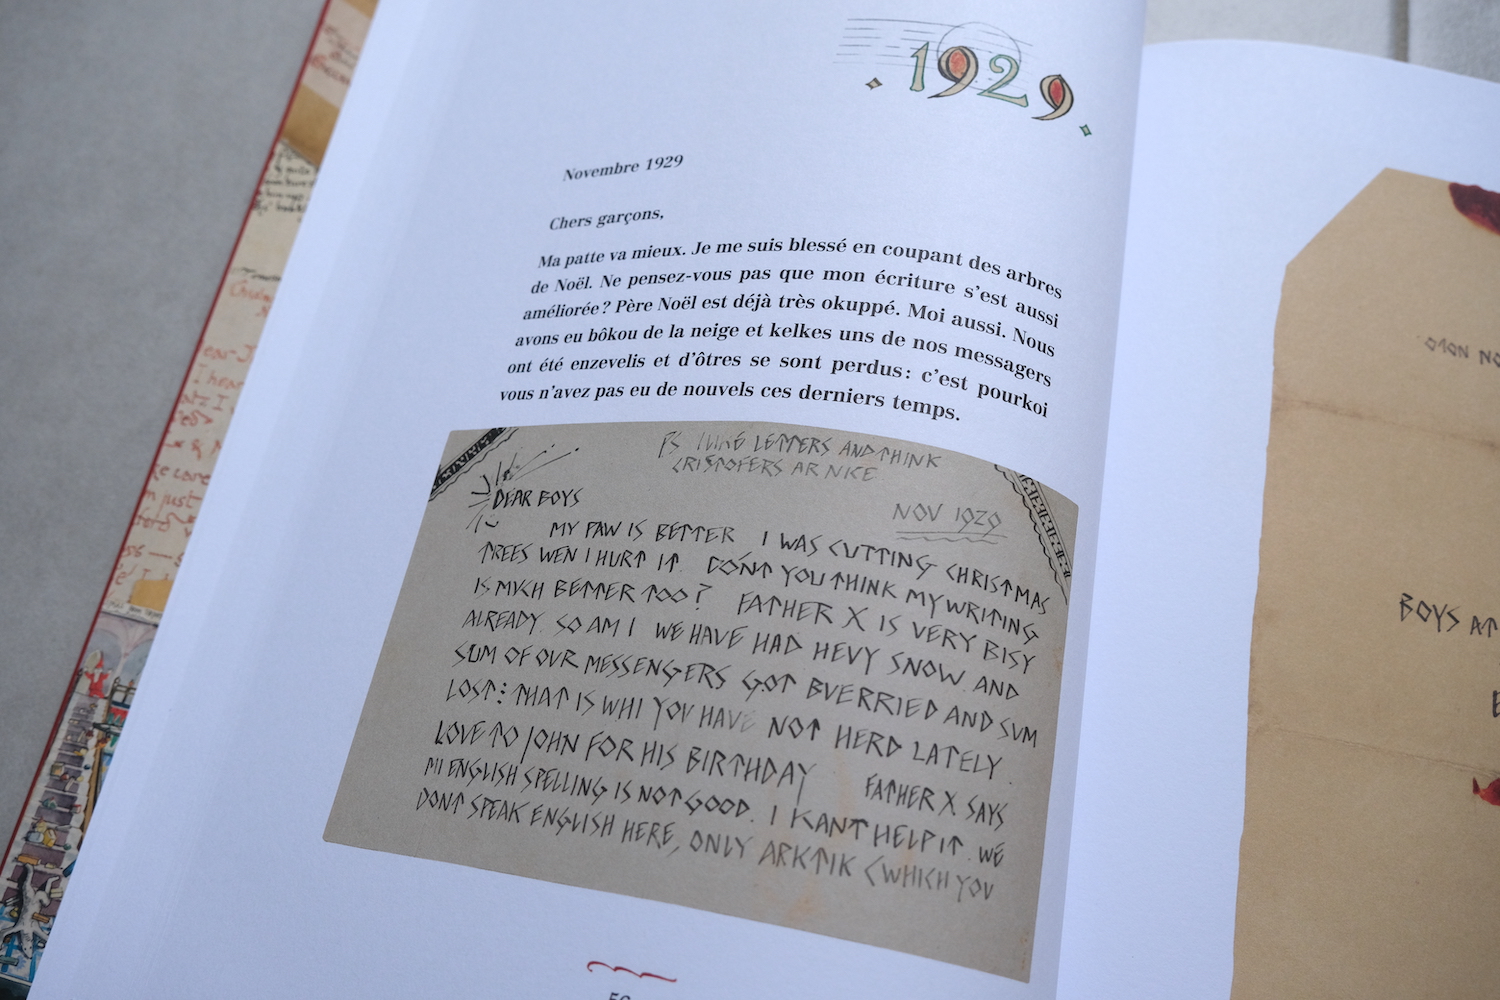 1929
Novembre 1929
Chers garçons,
Ma patte va mieux. Je me suis blessé en coupant des arbres
de Noël. Ne pensez-vous pas que mon écriture s'est aussi
améliorée ? Père Noël est déjà très okuppé. Moi aussi. Nous
avons eu bôkou de la neige et kelkes uns de nos messagers
ont été enzevelis et d'ôtres se sont perdus : c'est pourkoi
vous n'avez pas eu de nouvels ces derniers temps.
PS I LIKE LETTERS AND THINK
CRISTOFERS AR NICE
NOV 1929
DEAR BOYS
MY PAW IS BETTER I WAS CUTTING CHRISTMAS
TREES WEN I HURT IT. DONT YOU THINK MY WRITING
IS MUCH BETTER TOO? FATHER X IS VERY BISY
ALREADY. SO AM I WE HAVE HAD HEVY SNOW AND
SUM OF OUR MESSENGERS GOT BUERRIED AND SUM
LOST: THAT IS WHI YOU HAVE NOT HERD LATELY.
LOVE TO JOHN FOR HIS BIRTHDAY FATHER X SAYS
MI ENGLISH SPELLING IS NOT GOOD. I KANT HELP IT. WE
DONT SPEAK ENGLISH HERE, ONLY ARKTIK (WHICH YOU
BOYS AT